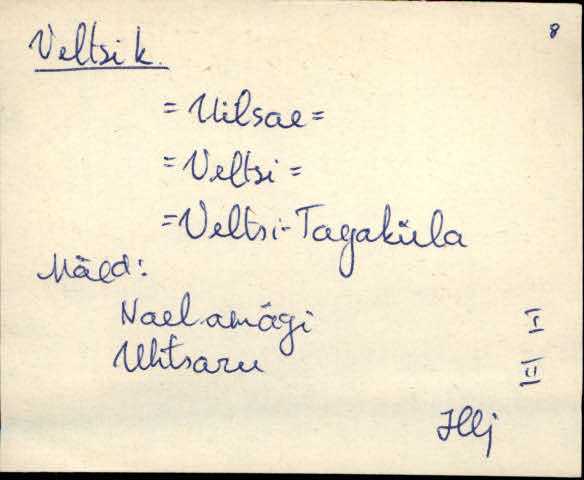 8
Veltsi k.
= Uilsae =
= Veltsi =
= Veltsi-Tagaküla
Mäed:
Naelamägi
Uhtsaru